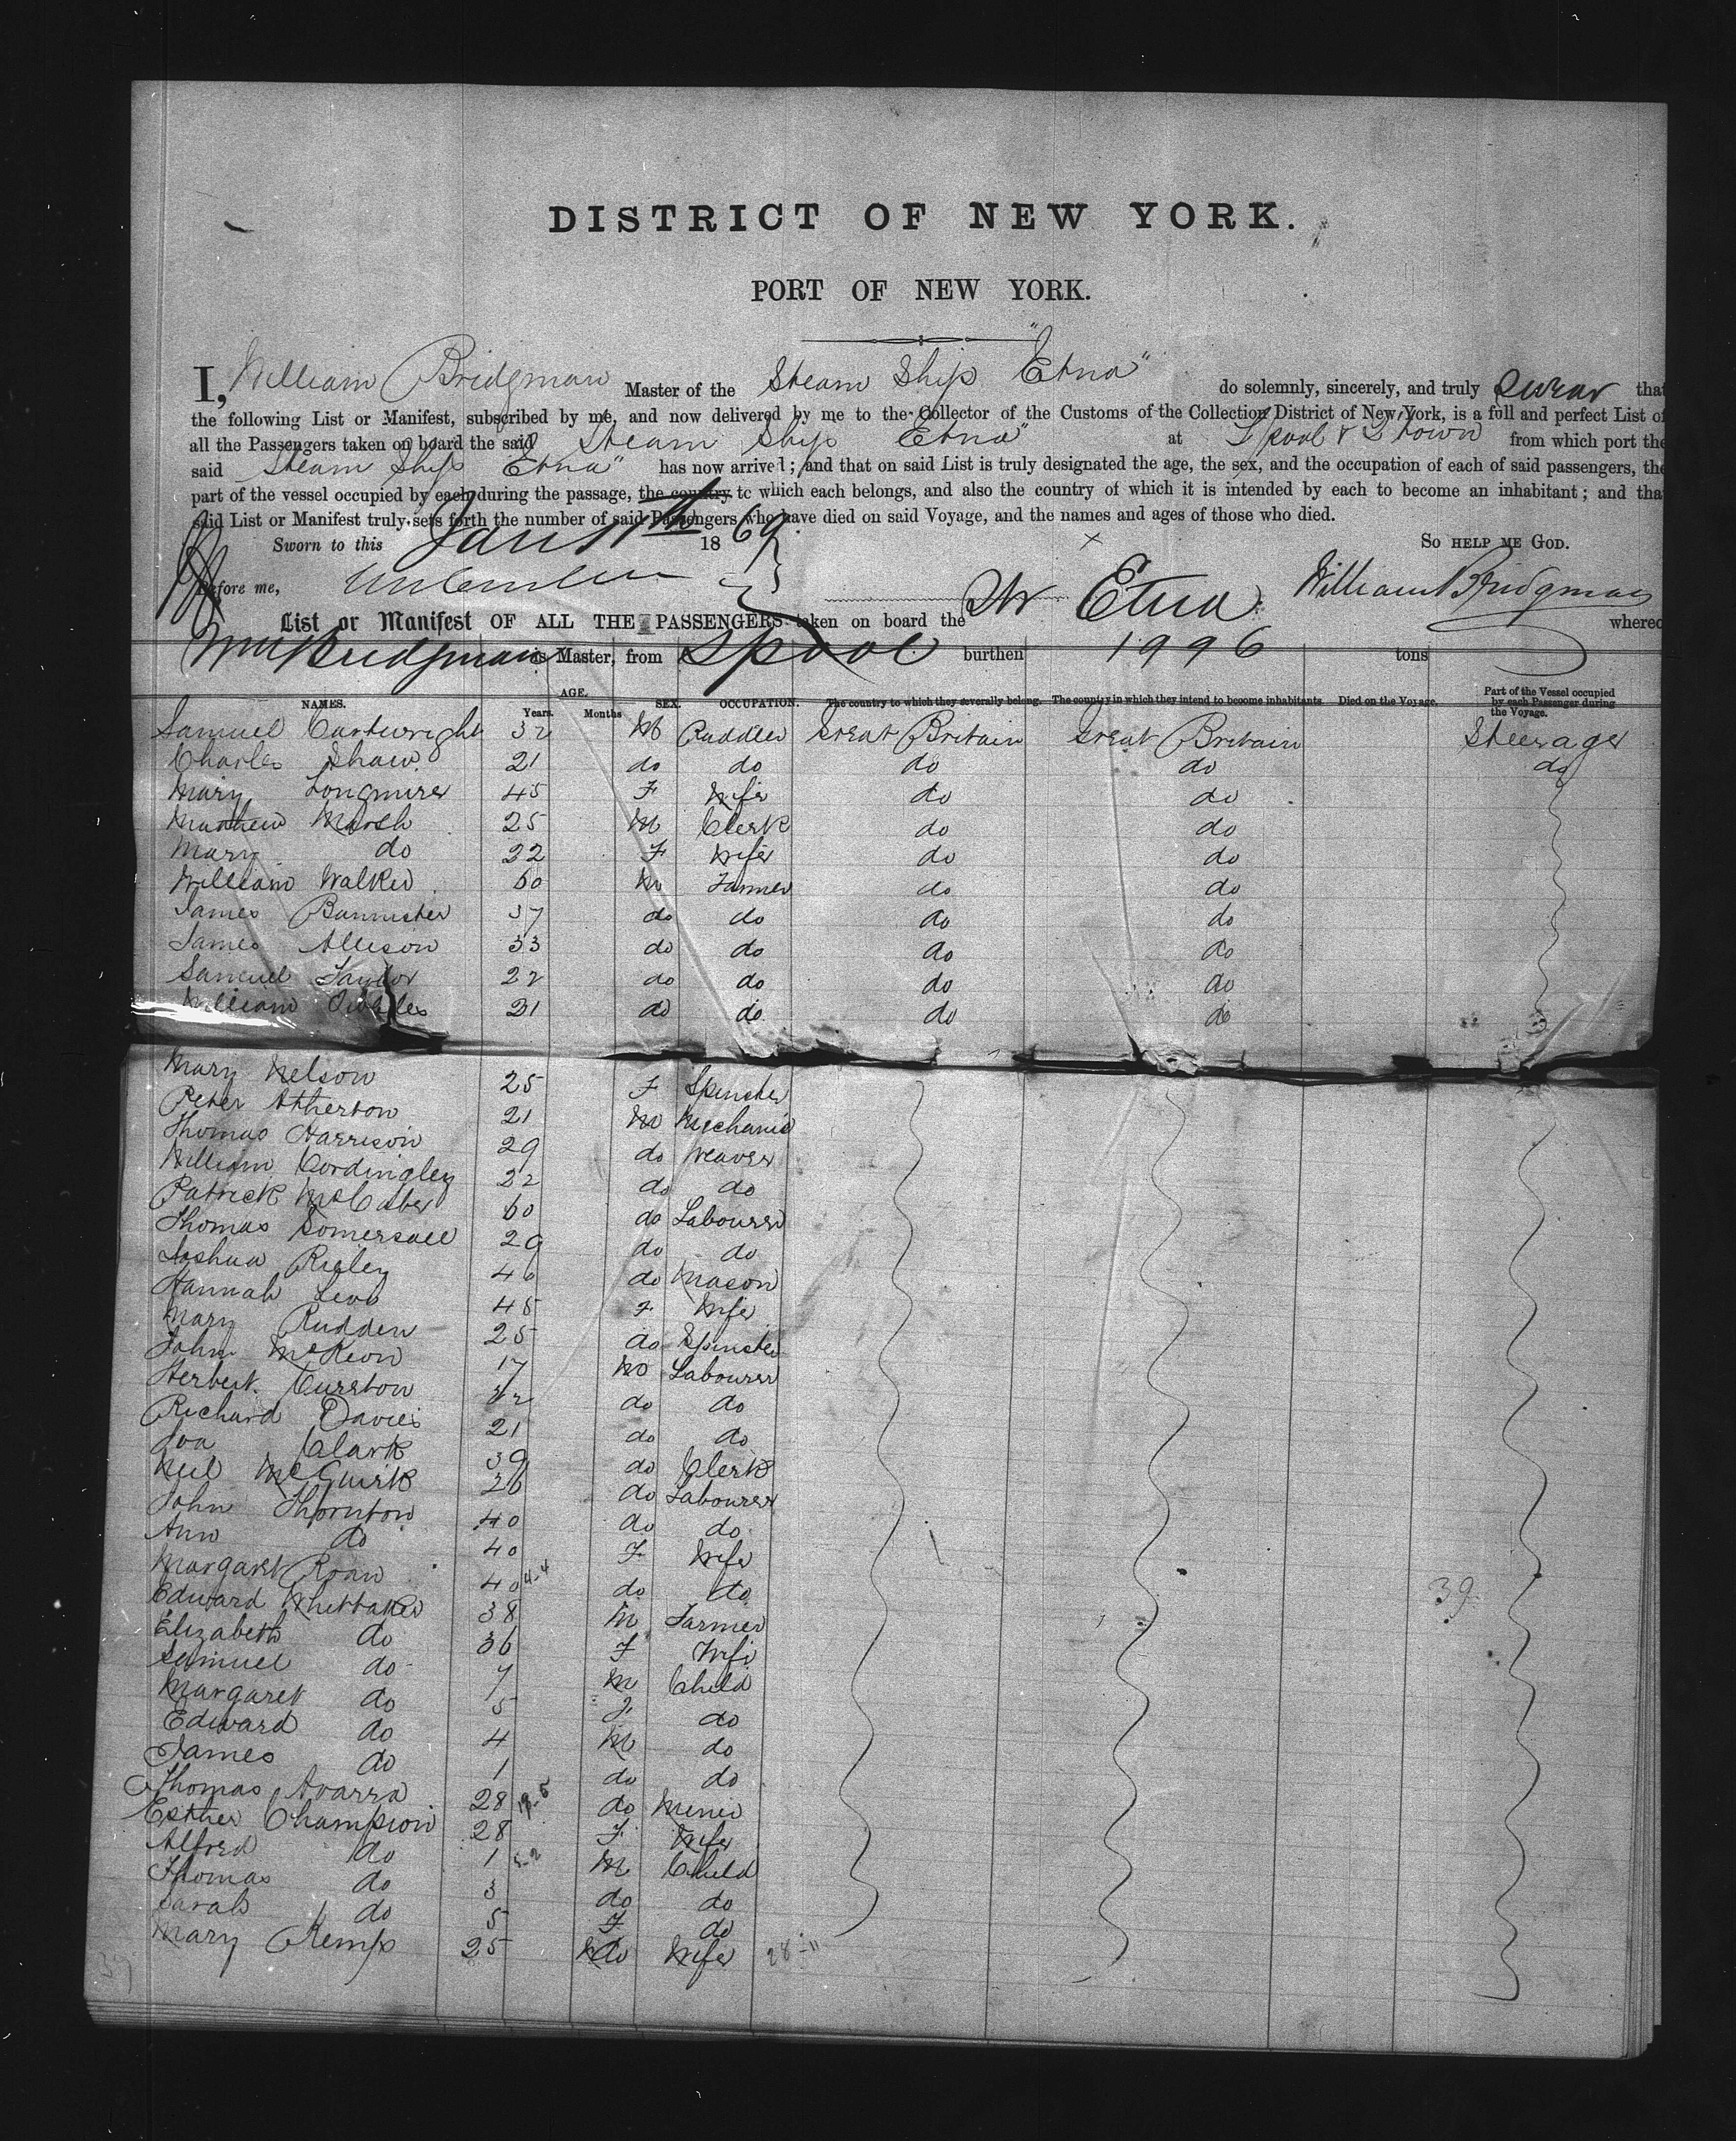 DISTRICT OF NEW YORK.
PORT OF NEW YORK.
I, William Bridgman Master of the Steam Ship "Etna" do solemnly, sincerely, and truly swear that
the following List or Manifest, subscribed by me, and now delivered by me to the Collector of the Customs of the Collection District of New York, is a full and perfect List of
all the Passengers taken on board the said Steam Ship Etna" at L'pool & Q'town from which port the
said Steam Ship Etna" has now arrived; and that on said List is truly designated the age, the sex, and the occupation of each of said passengers, the
part of the vessel occupied by each during the passage, the country to which each belongs, and also the country of which it is intended by each to become an inhabitant; and tha
said List or Manifest truly sets forth the number of said Passengers who have died on said Voyage, and the names and ages of those who died.
Sworn to this Jany 18 69 So HELP ME GOD.
Before me, William Bridgman
List or Manifest OF ALL THE PASSENGERS taken on board the Str Etna whereo
Wm Bridgman is Master, from Lpool burthen 1996 tons
NAMES. AGE. Years. Months SEX. OCCUPATION. The country to which they severally belong. The country in which they intend to become inhabitants Died on the Voyage. Part of the Vessel occupied by each Passenger during the Voyage.
Samuel Cartwright 32 M Puddler Great Britain Great Britain Steerage
Charles Shaw 21 do do do do do
Mary Longmire 45 F Wife do do
Matthew Marsh 25 M Clerk do do
Mary do 22 F Wife do do
William Walker 60 M Farmer do do
James Bannister 37 do do do do
James Allison 33 do do do do
Samuel Taylor 22 do do do do
William 21 do do do do
Mary Nelson 25 F Spinster
Peter Atherton 21 M Mechanic
Thomas Harrison 29 do Weaver
William Cordingley 22 do do
Patrick McCabe 60 do Labourer
Thomas Somersall 29 do do
Joshua Rigley 46 do Mason
Hannah 45 F Wife
Mary Rudden 25 do Spinster
John McKeon 17 M Labourer
Herbert Curston do do
Richard Davies 21 do do
Clark 39 do Clerk
Neil McGuirk 26 do Labourer
John Thornton 40 do do
Ann do 40 F Wife
Margaret Roan 40 4-4 do do
Edward Whittaker 38 M Farmer 39
Elizabeth do 36 F Wife
Samuel do 7 M Child
Margaret do 5 F do
Edward do 4 M do
James do 1 do do
Thomas Avarra 28 do Miner
Esther Champion 28 F Wife
Alfred do 1 M Child
Thomas do 3 do do
Sarah do 5 F do
Mary Kemp 25 do Wife 28-11
39